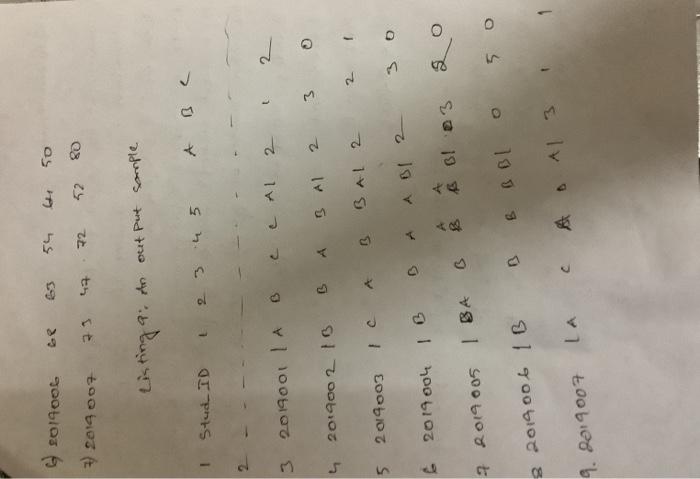 6) 2019006 68 63 54 41 50
7) 2019007 73 47 72 52 80
Listing 9: An output sample
1 Stud_ID 1 2 3 4 5 A B C
2 - - - - - - - - - - - - - -
3 2019001 | A B C C A | 2 1 2
4 2019002 | B B A B A | 2 3 0
5 2019003 | C A B B A | 2 2 1
6 2019004 | B B A A B | 2 3 0
7 2019005 | A B A A B | 3 2 0
8 2019006 | B B B B B | 0 5 0
9. 2019007 | A C A B A | 3 1 1